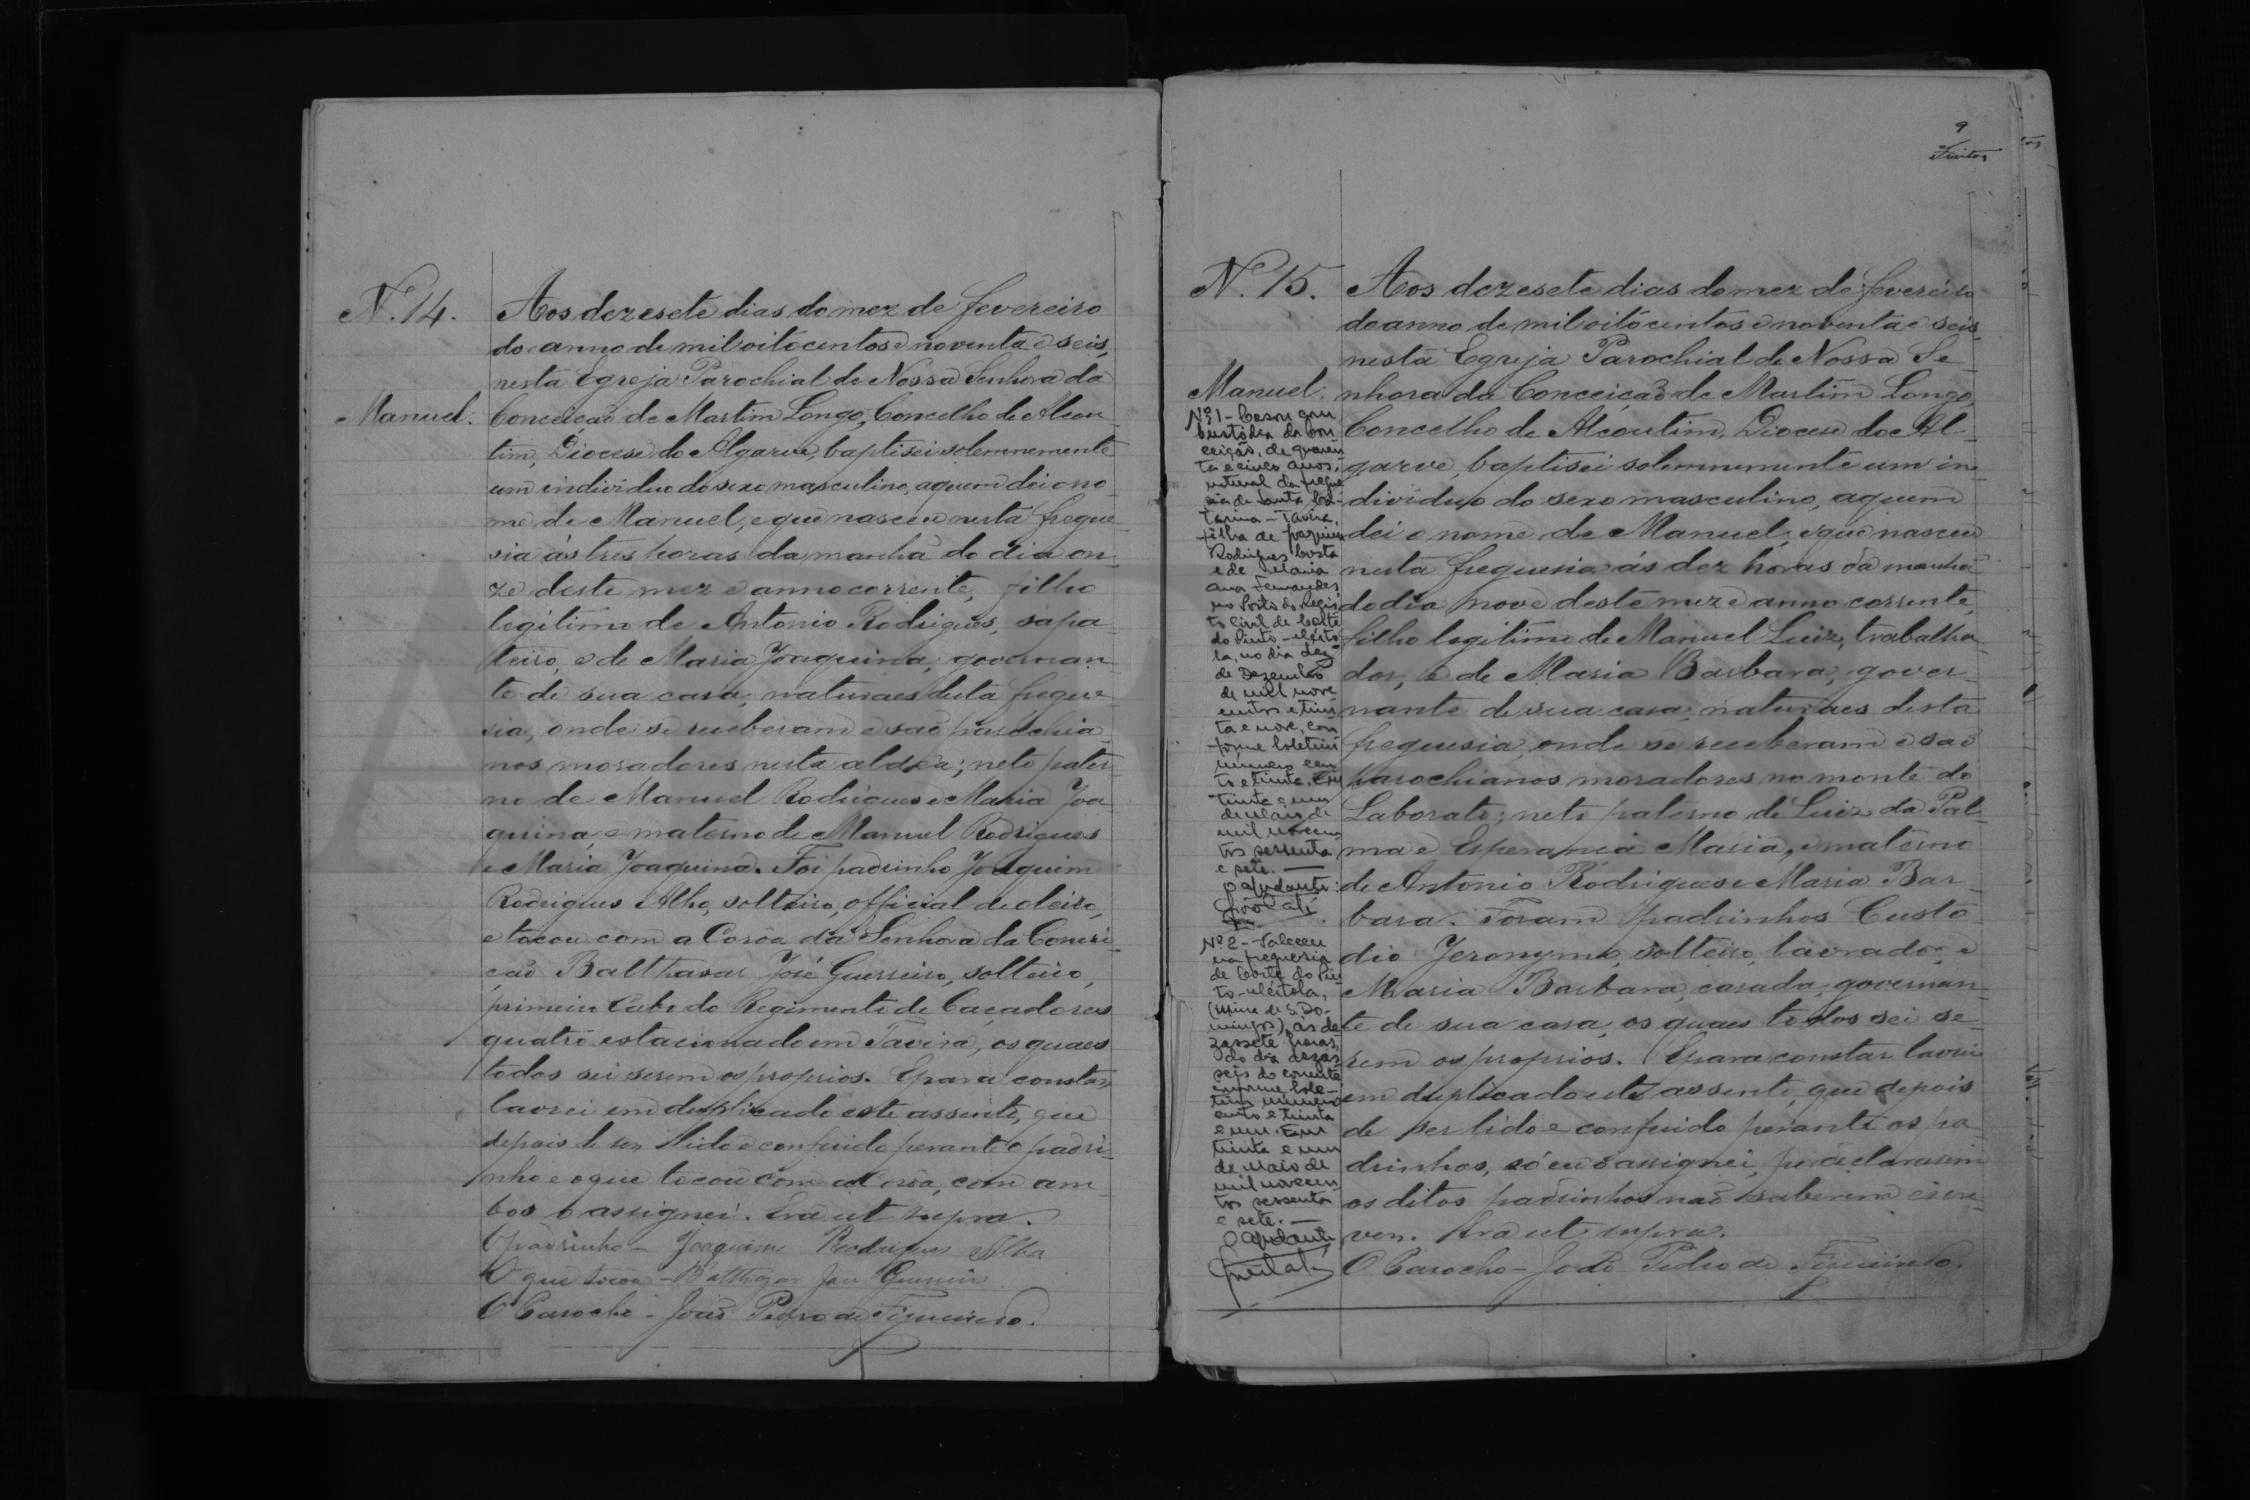 N. 14.
Manuel.
Aos dezesete dias do mez de fevereiro
do anno de mil oitocentos e noventa e seis,
nesta Egreja Parochial de Nossa Senhora da
Conceição de Martim Longo, Concelho de Alcou-
tim, Diocese do Algarve, baptisei solemnemente
um individuo do sexo masculino, a quem dei o no-
me de Manuel, e que nasceu nesta fregue-
sia ás tres horas da manhã do dia on-
ze deste mez e anno corrente, filho
legitimo de Antonio Rodrigues, sapa-
teiro, e de Maria Joaquina, governan-
te de sua casa, naturaes desta fregue-
sia, onde se receberam e são parochia-
nos moradores nesta aldêa; neto pater-
no de Manuel Rodrigues e Maria Joa-
quina, e materno de Manuel Rodrigues
e Maria Joaquina. Foi padrinho Joaquim
Rodrigues Alho, solteiro, official de oleiro,
e tocou com a Corôa da Senhora da Concei-
ção Balthasar José Guerreiro, solteiro,
primeiro Cabo do Regimento de Caçadores
quatro estacionado em Tavira, os quaes
todos sei serem os proprios. E para constar
lavrei em duplicado este assento, que
depois de ser lido e conferido perante o padri-
nho e o que tocou com a Corôa, com am-
bos o assignei. Era ut supra.
O padrinho - Joaquim Rodrigues Alho
O que tocou - Balthazar José Guerreiro
O Parocho - João Pedro de Figueiredo.
9
N. 15.
Manuel.
Nº 1 - Casou com
Custódia da Con-
ceição, de quaren-
ta e cinco anos,
natural da fregue-
sia de Santa Ca-
tarina - Tavira,
filha de Joaquim
Rodrigues Costa
e de Maria
Ana Fernandes
no Posto do Regis-
to Civil de Corte
do Pinto - Mérto-
la, no dia dez
de Dezembro
de mil nove-
centos e trin-
ta e nove, con-
forme boletim
número cen-
to e trinta. Em
trinta e um
de Maio de
mil novecen-
tos sessenta
e sete. —
O ajudante:
Nº 2 - Faleceu
na freguesia
de Corte do Pin-
to - Mértola,
(Mina de S. Do-
mingos), às de-
zassete horas,
do dia dezas-
seis do corrente
conforme bole-
tim número
cento e trinta
e um. Em
trinta e um
de Maio de
mil novecen-
tos sessenta
e sete. —
O ajudante
Aos dezesete dias do mez de fevereiro
do anno de mil oitocentos e noventa e seis
nesta Egreja Parochial de Nossa Se-
nhora da Conceição de Martim Longo,
Concelho de Alcoutim, Diocese do Al-
garve, baptisei solemnemente um in-
dividuo do sexo masculino, a quem
dei o nome de Manuel, e que nasceu
nesta freguesia ás dez horas da manhã
do dia nove deste mez e anno corrente,
filho legitimo de Manuel Luiz, trabalha-
dor, e de Maria Barbara, gover-
nante de sua casa, naturaes desta
freguesia, onde se receberam e são
parochianos moradores no monte do
Laborato; neto paterno de Luiz da Pal-
ma e Esperança Maria, e materno
de Antonio Rodrigues e Maria Bar-
bara. Foram padrinhos Custo-
dio Jeronymo, solteiro, lavrador, e
Maria Barbara, casada, governan-
te de sua casa, os quaes todos sei se-
rem os proprios. E para constar lavrei
em duplicado este assento, que depois
de ser lido e conferido perante os pa-
drinhos, só eu o assignei, por declararem
os ditos padrinhos não saberem escre-
ver. Era ut supra.
O Parocho - João Pedro de Figueiredo.